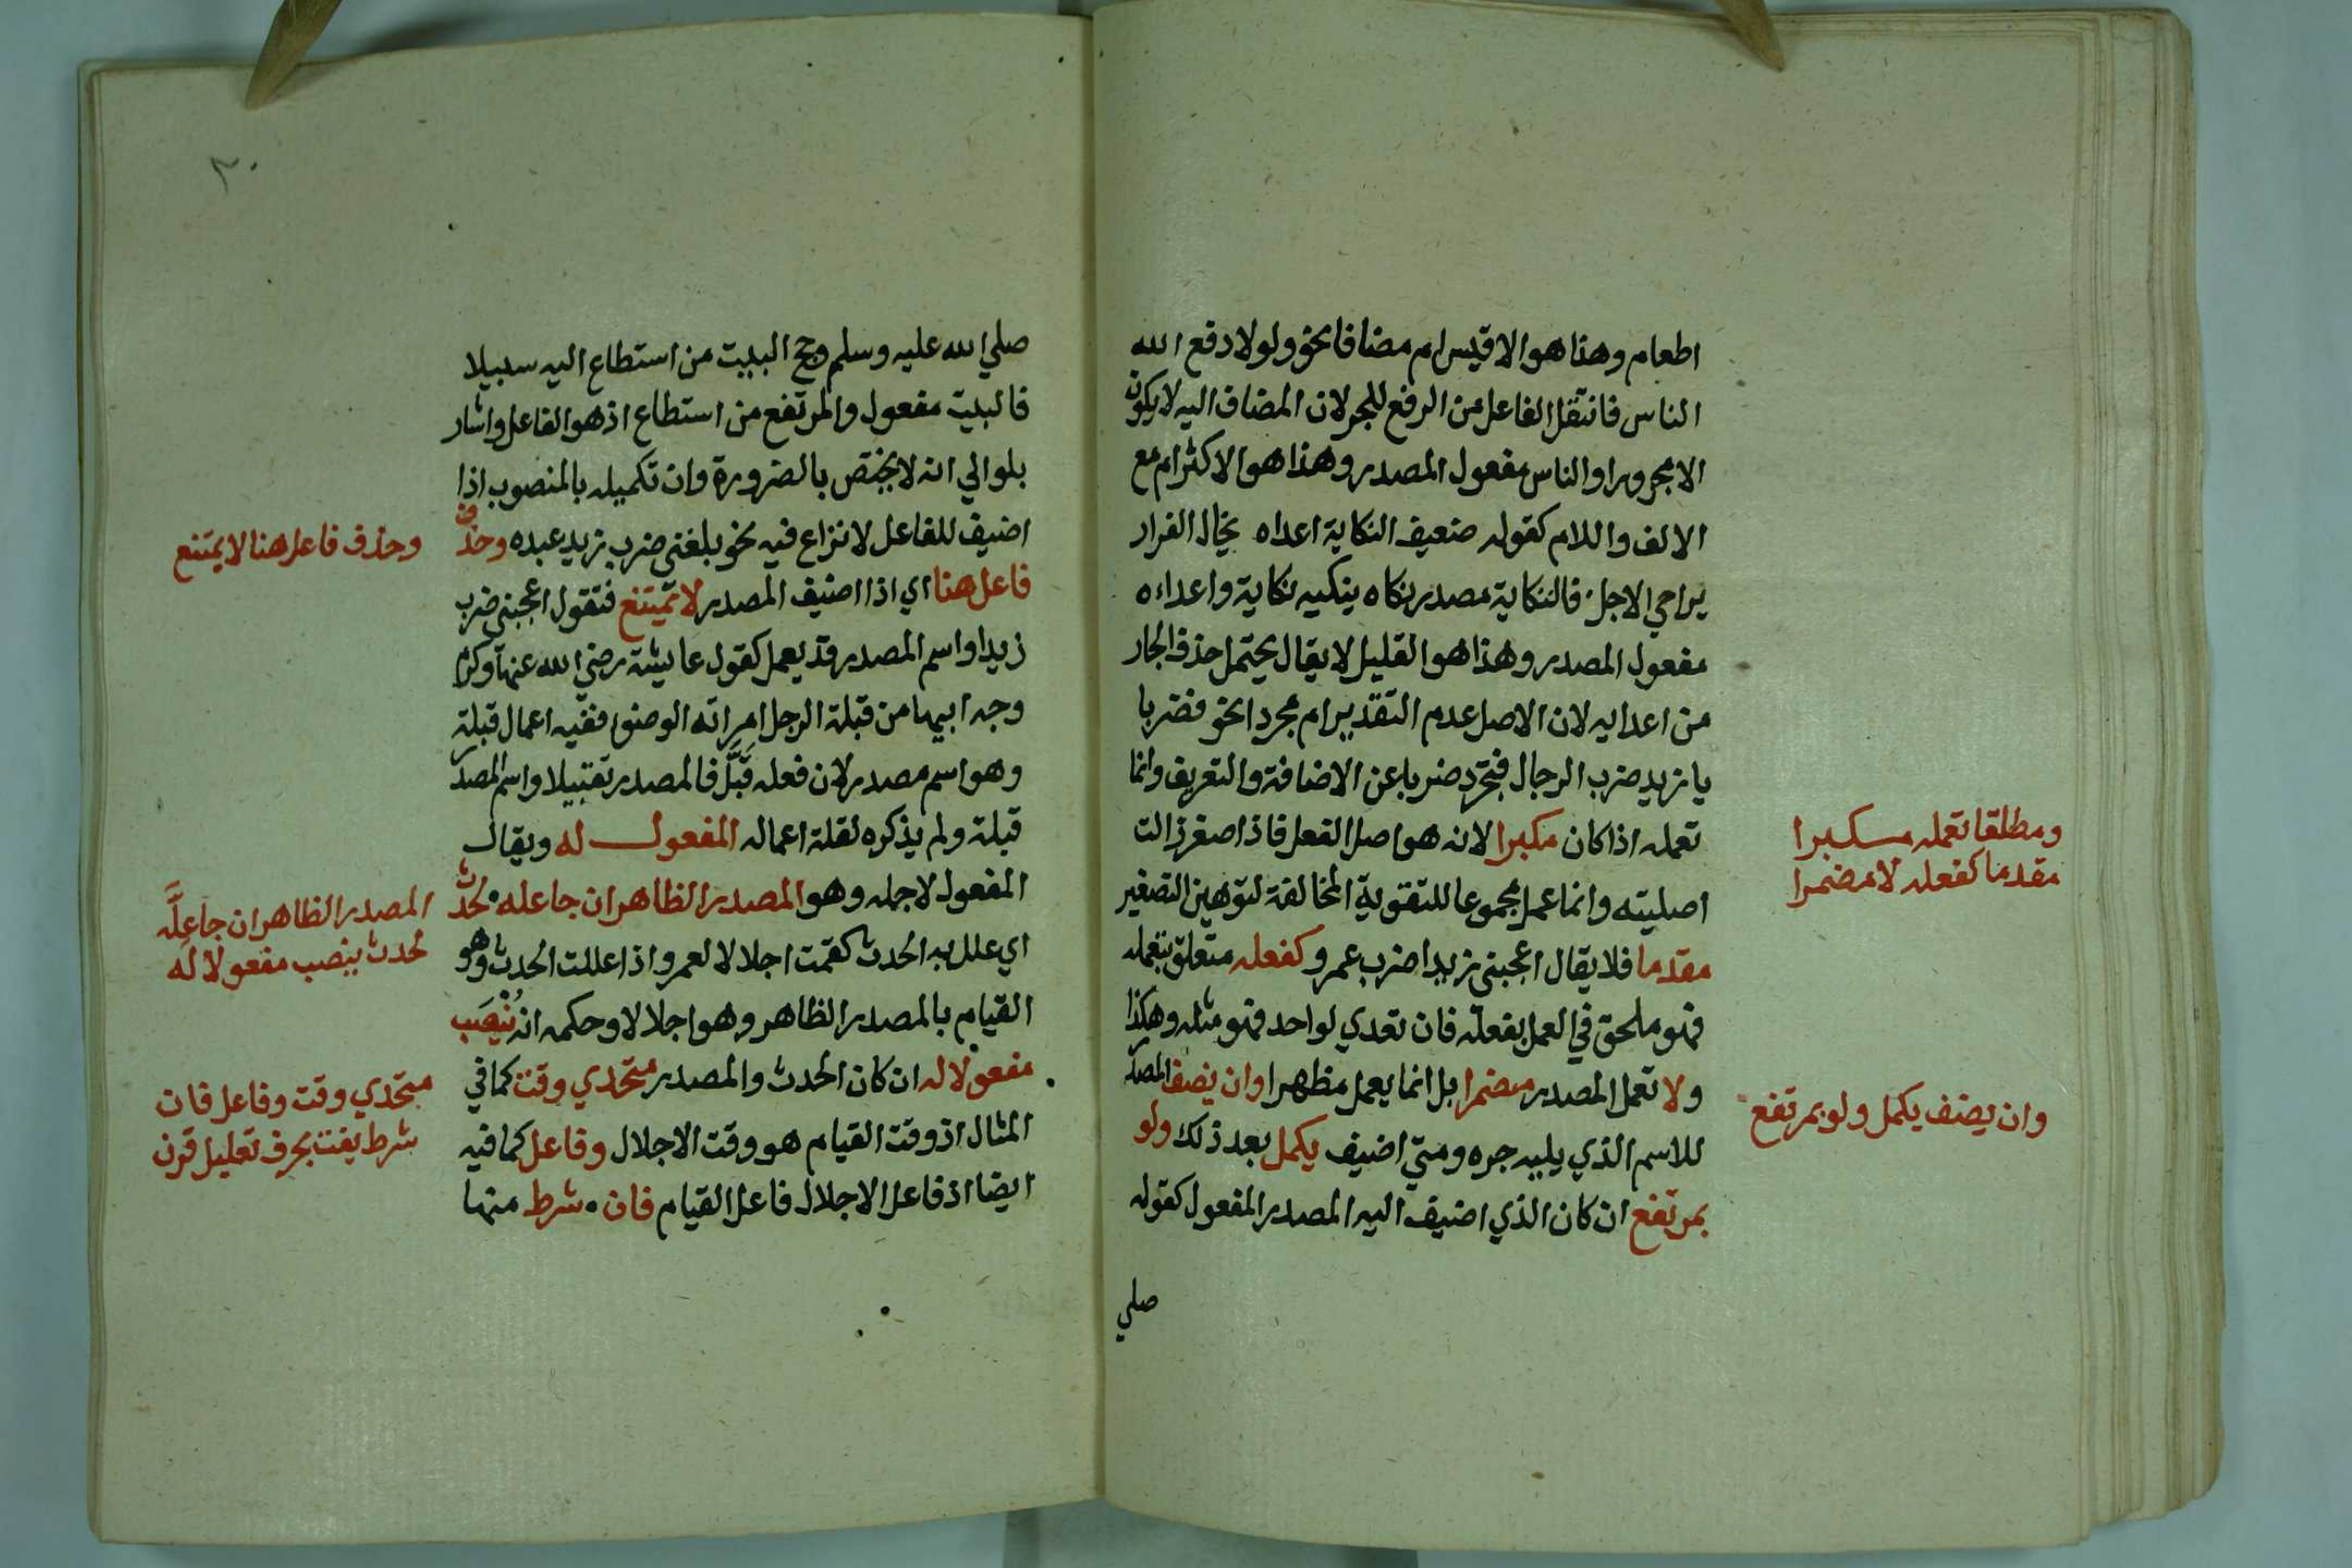 اطعام وهذا هو الاقيس ام مضافا نحو ولولا دفع الله
الناس فانتقل الفاعل من الرفع للجر لان المضاف اليه لا يكون
الا مجرورا والناس مفعول المصدر وهذا هو الاكثر ام مع
الالف واللام كقوله ضعيف النكاية اعداه يخال الفرار
يراخي الاجل فالنكاية مصدر نكاه ينكيه نكاية واعداءه
مفعول المصدر وهذا هو القليل لا يقال يحتمل حذف الجار
من اعدايه لان الاصل عدم التقدير ام مجردا نحو فضربا
يا زيد ضرب الرجال فتجرد ضربا عن الاضافة والتعريف وانما
تعمله اذا كان مكبرا لانه هو اصل الفعل فاذا صغر زالت
اصليته وانما عمل مجموعا للتقوية المخالفة لتوهين التصغير
مقدما فلا يقال اعجبني زيدا ضرب عمرو كفعله متعلق بتعمله
فهو ملحق في العمل بفعله فان تعدي لواحد فهو مثله وهكذا
ولا تعمل المصدر مضمرا بل انما يعمل مظهرا وان يضف المصدر
للاسم الذي يليه جره ومتي اضيف يكمل بعد ذلك ولو
بمرتفع ان كان الذي اضيف اليه المصدر المفعول كقوله
صلي
ومطلقا تعمله مسكبرا
مقدما كفعله لا مضمرا
وان يضف يكمل ولو بمرتفع
٣٠
صلي الله عليه وسلم وحج البيت من استطاع اليه سبيلا
فالبيت مفعول والمرتفع من استطاع اذ هو الفاعل واشار
بلو الي انه لا يختص بالضرورة وان تكميله بالمنصوب اذا
اضيف للفاعل لا نزاع فيه نحو بلغني ضرب زيد عبده وحذف
فاعل هنا اي اذا اضيف المصدر لا يمتنع فتقول اعجبني ضرب
زيدا واسم المصدر قد يعمل كقول عايشة رضي الله عنها وكرم
وجه ابيها من قبلة الرجل امراته الوضوا ففيه اعمال قبلة
وهو اسم مصدر لان فعله قَبَّلَ فالمصدر تقبيلا واسم المصدر
قبلة ولم يذكره لقلة اعماله المفعول له ويقال
المفعول لاجله وهو المصدر الظاهر ان جا عله لحدث
اي علل به الحدث كقمت اجلالا لعمرو اذا عللت الحدث وهو
القيام بالمصدر الظاهر وهو اجلالا وحكمه انه يُنْصَب
مفعولا له ان كان الحدث والمصدر متحدي وقت كما في
المثال اذ وقت القيام هو وقت الاجلال وفاعل كما فيه
ايضا اذ فاعل الاجلال فاعل القيام فان شرط منها
وحذف فاعل هنا لا يمتنع
المصدر الظاهر ان جا عِلَّه
لحدث ينصب مفعولا له
متحدي وقت وفاعل فان
شرط يفت بحرف تعليل قرن